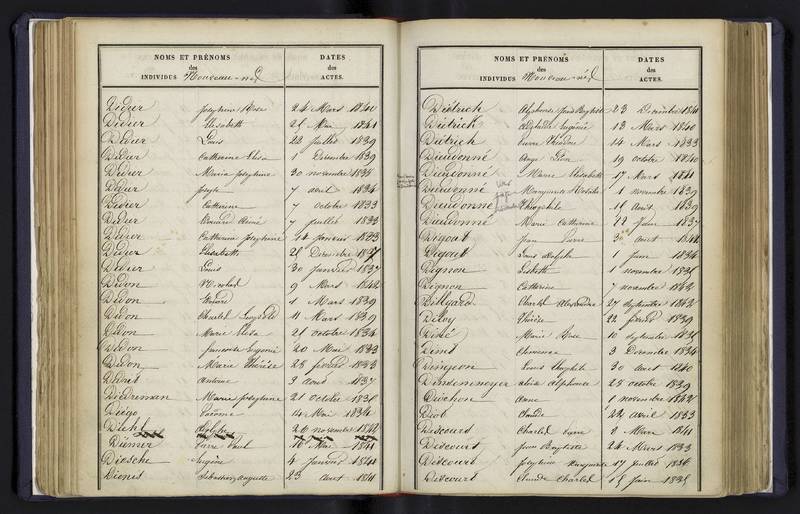 NOMS ET PRÉNOMS
des
INDIVIDUS Nouveau-nés
DATES
des
ACTES.
Didier Joséphine Rose 24 Mars 1840
Didier Elisabeth 25 Mai 1841
Didier Louis 22 juillet 1839
Didier Catherine Elisa 1 Décembre 1839
Didier Maria Joséphine 30 novembre
Didier Joseph 7 avril 1834
Didier Catherine 7 octobre 1833
Didier Edouard Aimé 7 juillet 1833
Didier Catherine Joséphine 14 Janvier 1833
Didier Elisabeth 25 Décembre
Didier Louis 30 janvier 1837
Didon Nicolas 9 Mars 1842
Didon 1 Mars 1839
Didon Charles Léopold 11 Mars 1839
Didon Marie Elisa 21 octobre 1834
Didon Françoise Eugénie 20 Mai 1833
Didon Marie Thérèse 28 février 1833
Antoine 3 aout 1837
Diedreman Marie Joséphine 21 octobre
Diégo 14 Mai 1834
Diehl 26 novembre 1842
Diemer Paul 16 Mai 1841
Diesche Eugène 4 Janvier 1844
Dionis Sébastien Auguste 23 aout
NOMS ET PRÉNOMS
des
INDIVIDUS Nouveau-nés
DATES
des
ACTES.
Diétrich Alphonse Jean Baptiste 23 Décembre
Diétrich Eugénie 13 Mars 1840
Diétrich Pierre Théodore 14 Mars 1833
Dieudonné Ange Léon 19 octobre 1840
Dieudonné Marie Elisabeth 17 Mars 1841
Dieudonné Marguerite 1 novembre 1839
Dieudonné Théophile Aout 1839
Dieudonné Marie Catherine Juin 1837
Digout Jean Pierre 30 aout 1842
Digout Louis Adolphe 1 Juin 1834
Dignon Lisbeth 1 novembre
Dignon Catherine 7 novembre 1842
Dillgard Charles Alexandre 27 septembre 1842
Diloy Thérèse 22 février 1839
Diné Marie Rose 10 septembre
Diné Clémence 3 Décembre 1834
Dingeon Louis Théophile 30 aout 1840
Alphonse 25 octobre 1839
Diochon Anne 1 novembre 1842
Diot Claude 22 avril 1833
Discourt Charles Pierre Mars 1841
Discourt Jean Baptiste 24 Mars 1833
Discourt Joséphine Marguerite 17 juillet 1836
Discourt Claude Charles Juin